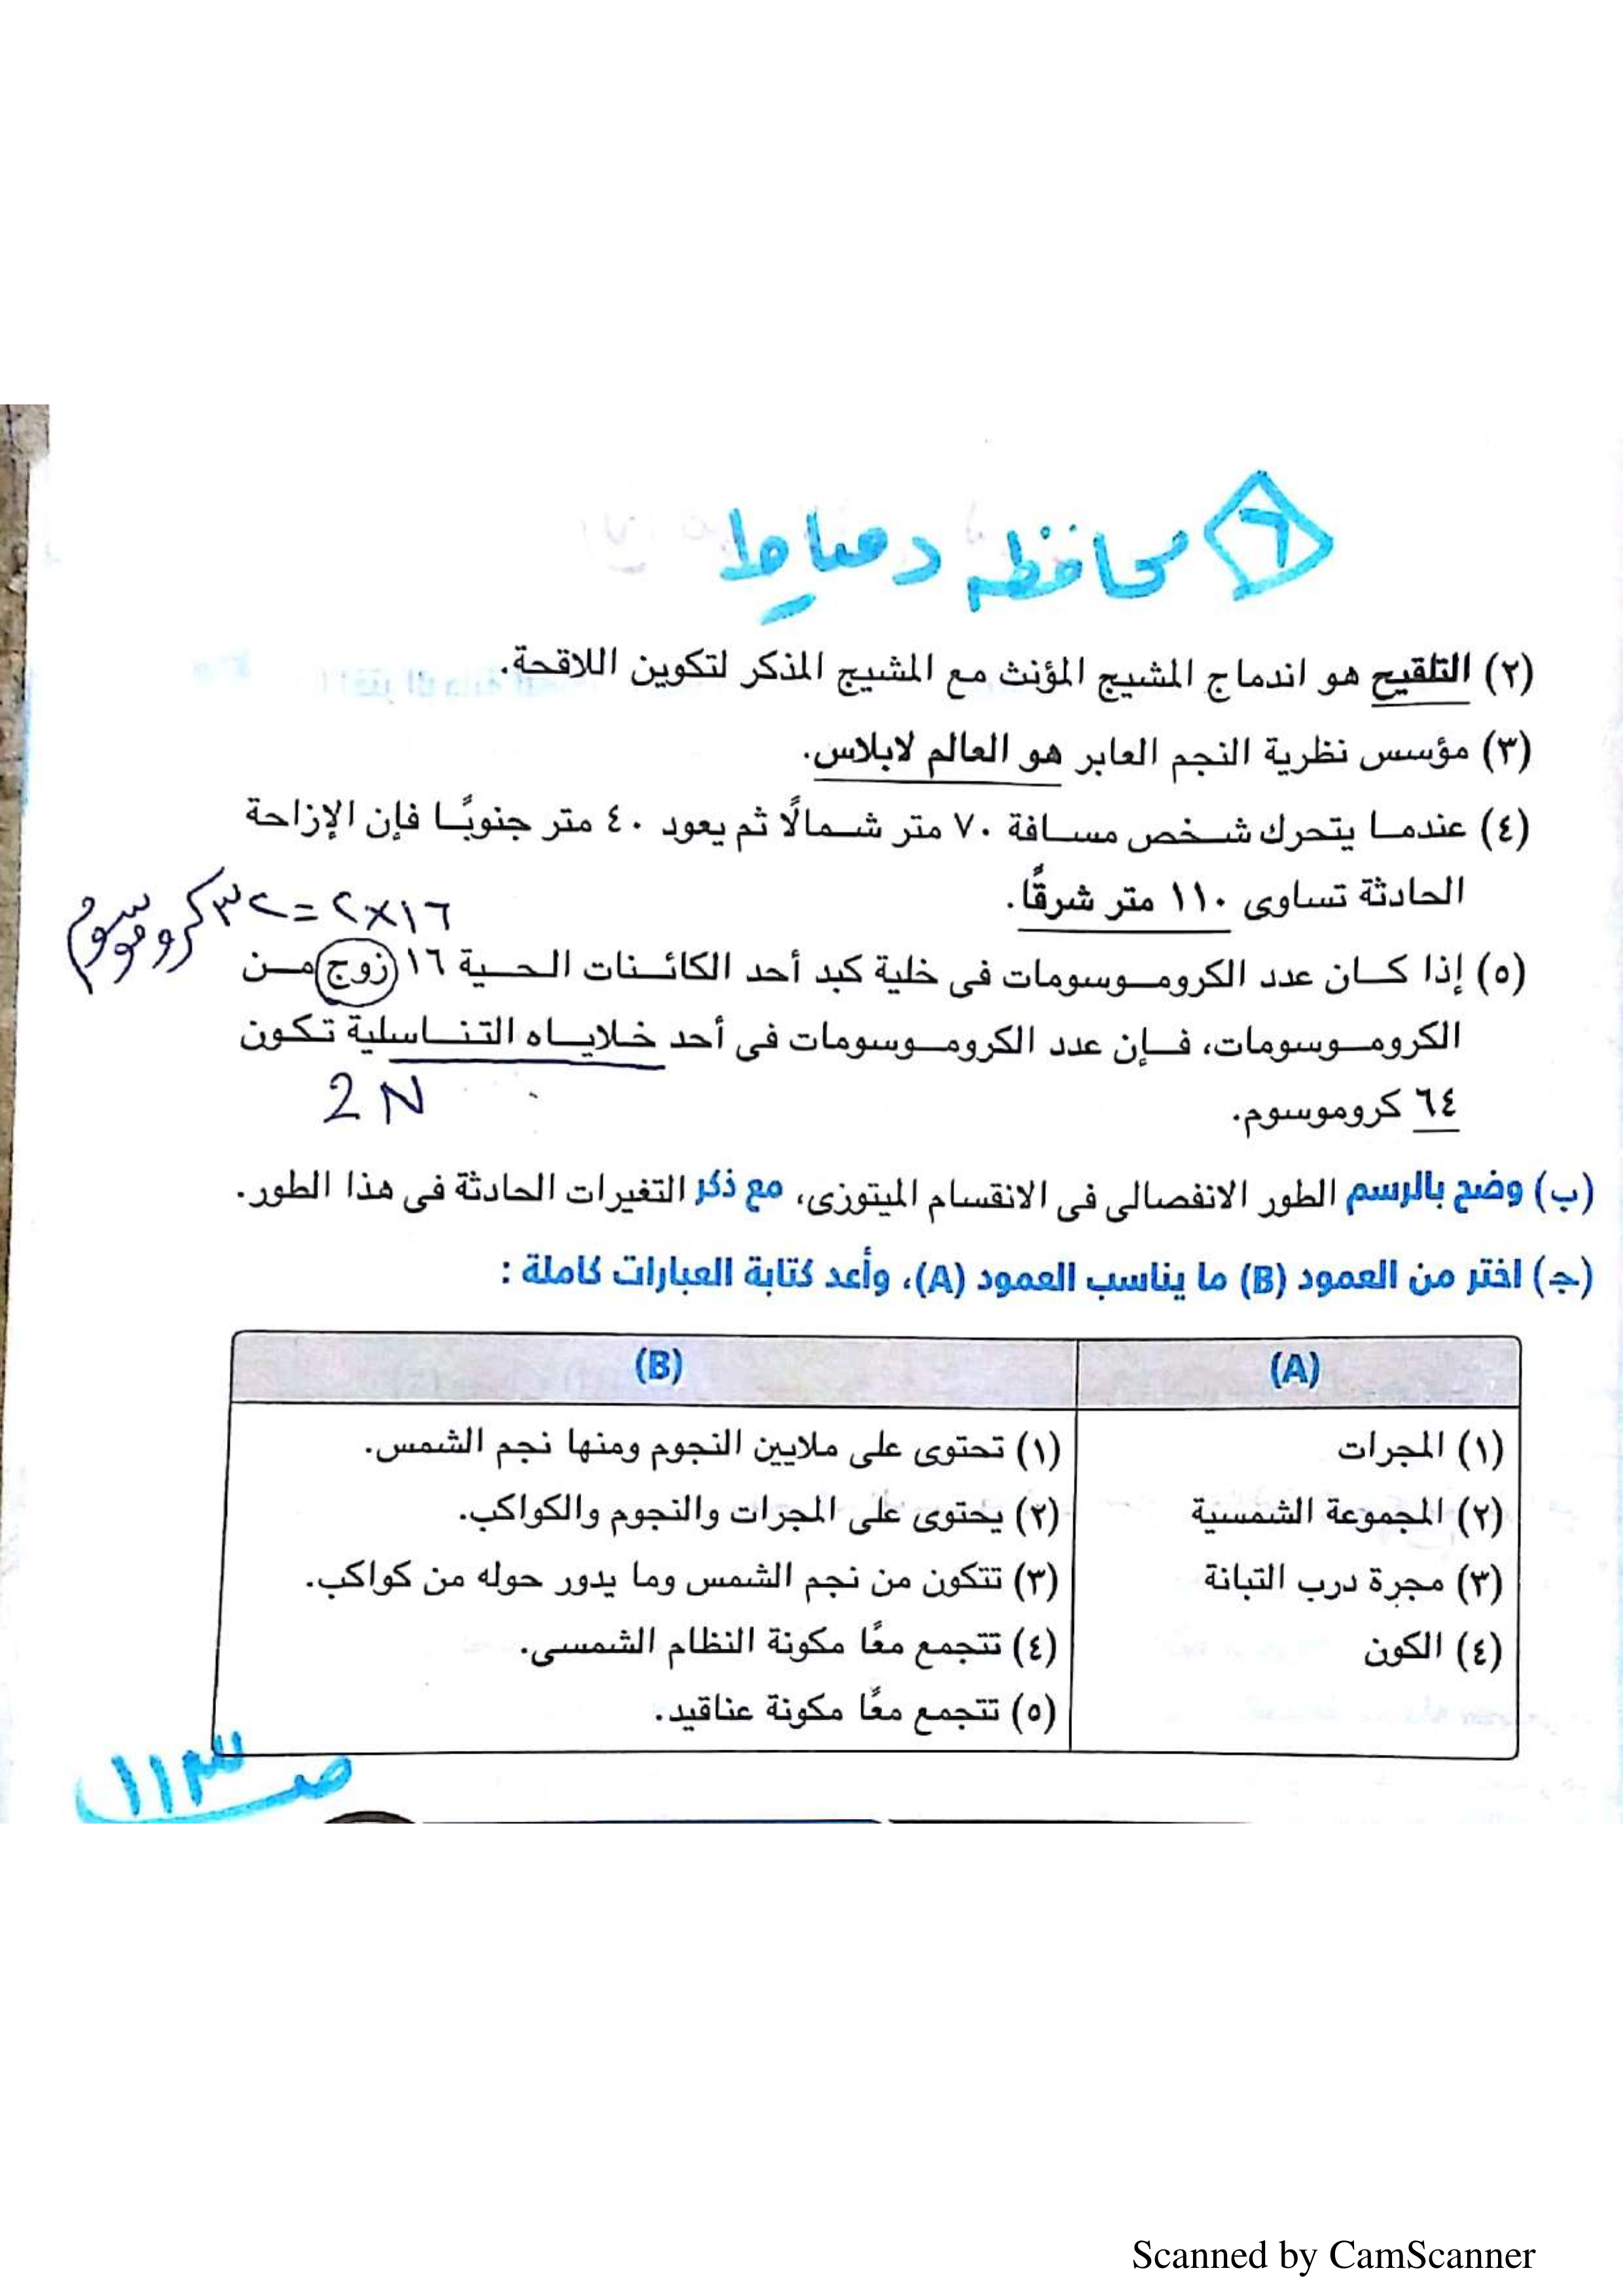 ٦ محافظه دمياط
(٢) التلقيح هو اندماج المشيج المؤنث مع المشيج المذكر لتكوين اللاقحة.
(٣) مؤسس نظرية النجم العابر هو العالم لابلاس.
(٤) عندما يتحرك شخص مسافة ٧٠ متر شمالًا ثم يعود ٤٠ متر جنوبًا فإن الإزاحة
الحادثة تساوى ١١٠ متر شرقًا.
١٦×٢=٣٢ كروموسوم
(٥) إذا كان عدد الكروموسومات فى خلية كبد أحد الكائنات الحية ١٦ زوج من
الكروموسومات، فإن عدد الكروموسومات فى أحد خلاياه التناسلية تكون
2N
٦٤ كروموسوم.
(ب) وضح بالرسم الطور الانفصالى فى الانقسام الميتوزى، مع ذكر التغيرات الحادثة فى هذا الطور.
(جـ) اختر من العمود (B) ما يناسب العمود (A)، وأعد كتابة العبارات كاملة :
(A) (B)
(١) المجرات (١) تحتوى على ملايين النجوم ومنها نجم الشمس.
(٢) المجموعة الشمسية (٢) يحتوى على المجرات والنجوم والكواكب.
(٣) مجرة درب التبانة (٣) تتكون من نجم الشمس وما يدور حوله من كواكب.
(٤) الكون (٤) تتجمع معًا مكونة النظام الشمسى.
(٥) تتجمع معًا مكونة عناقيد.
صـ ١١٣
Scanned by CamScanner